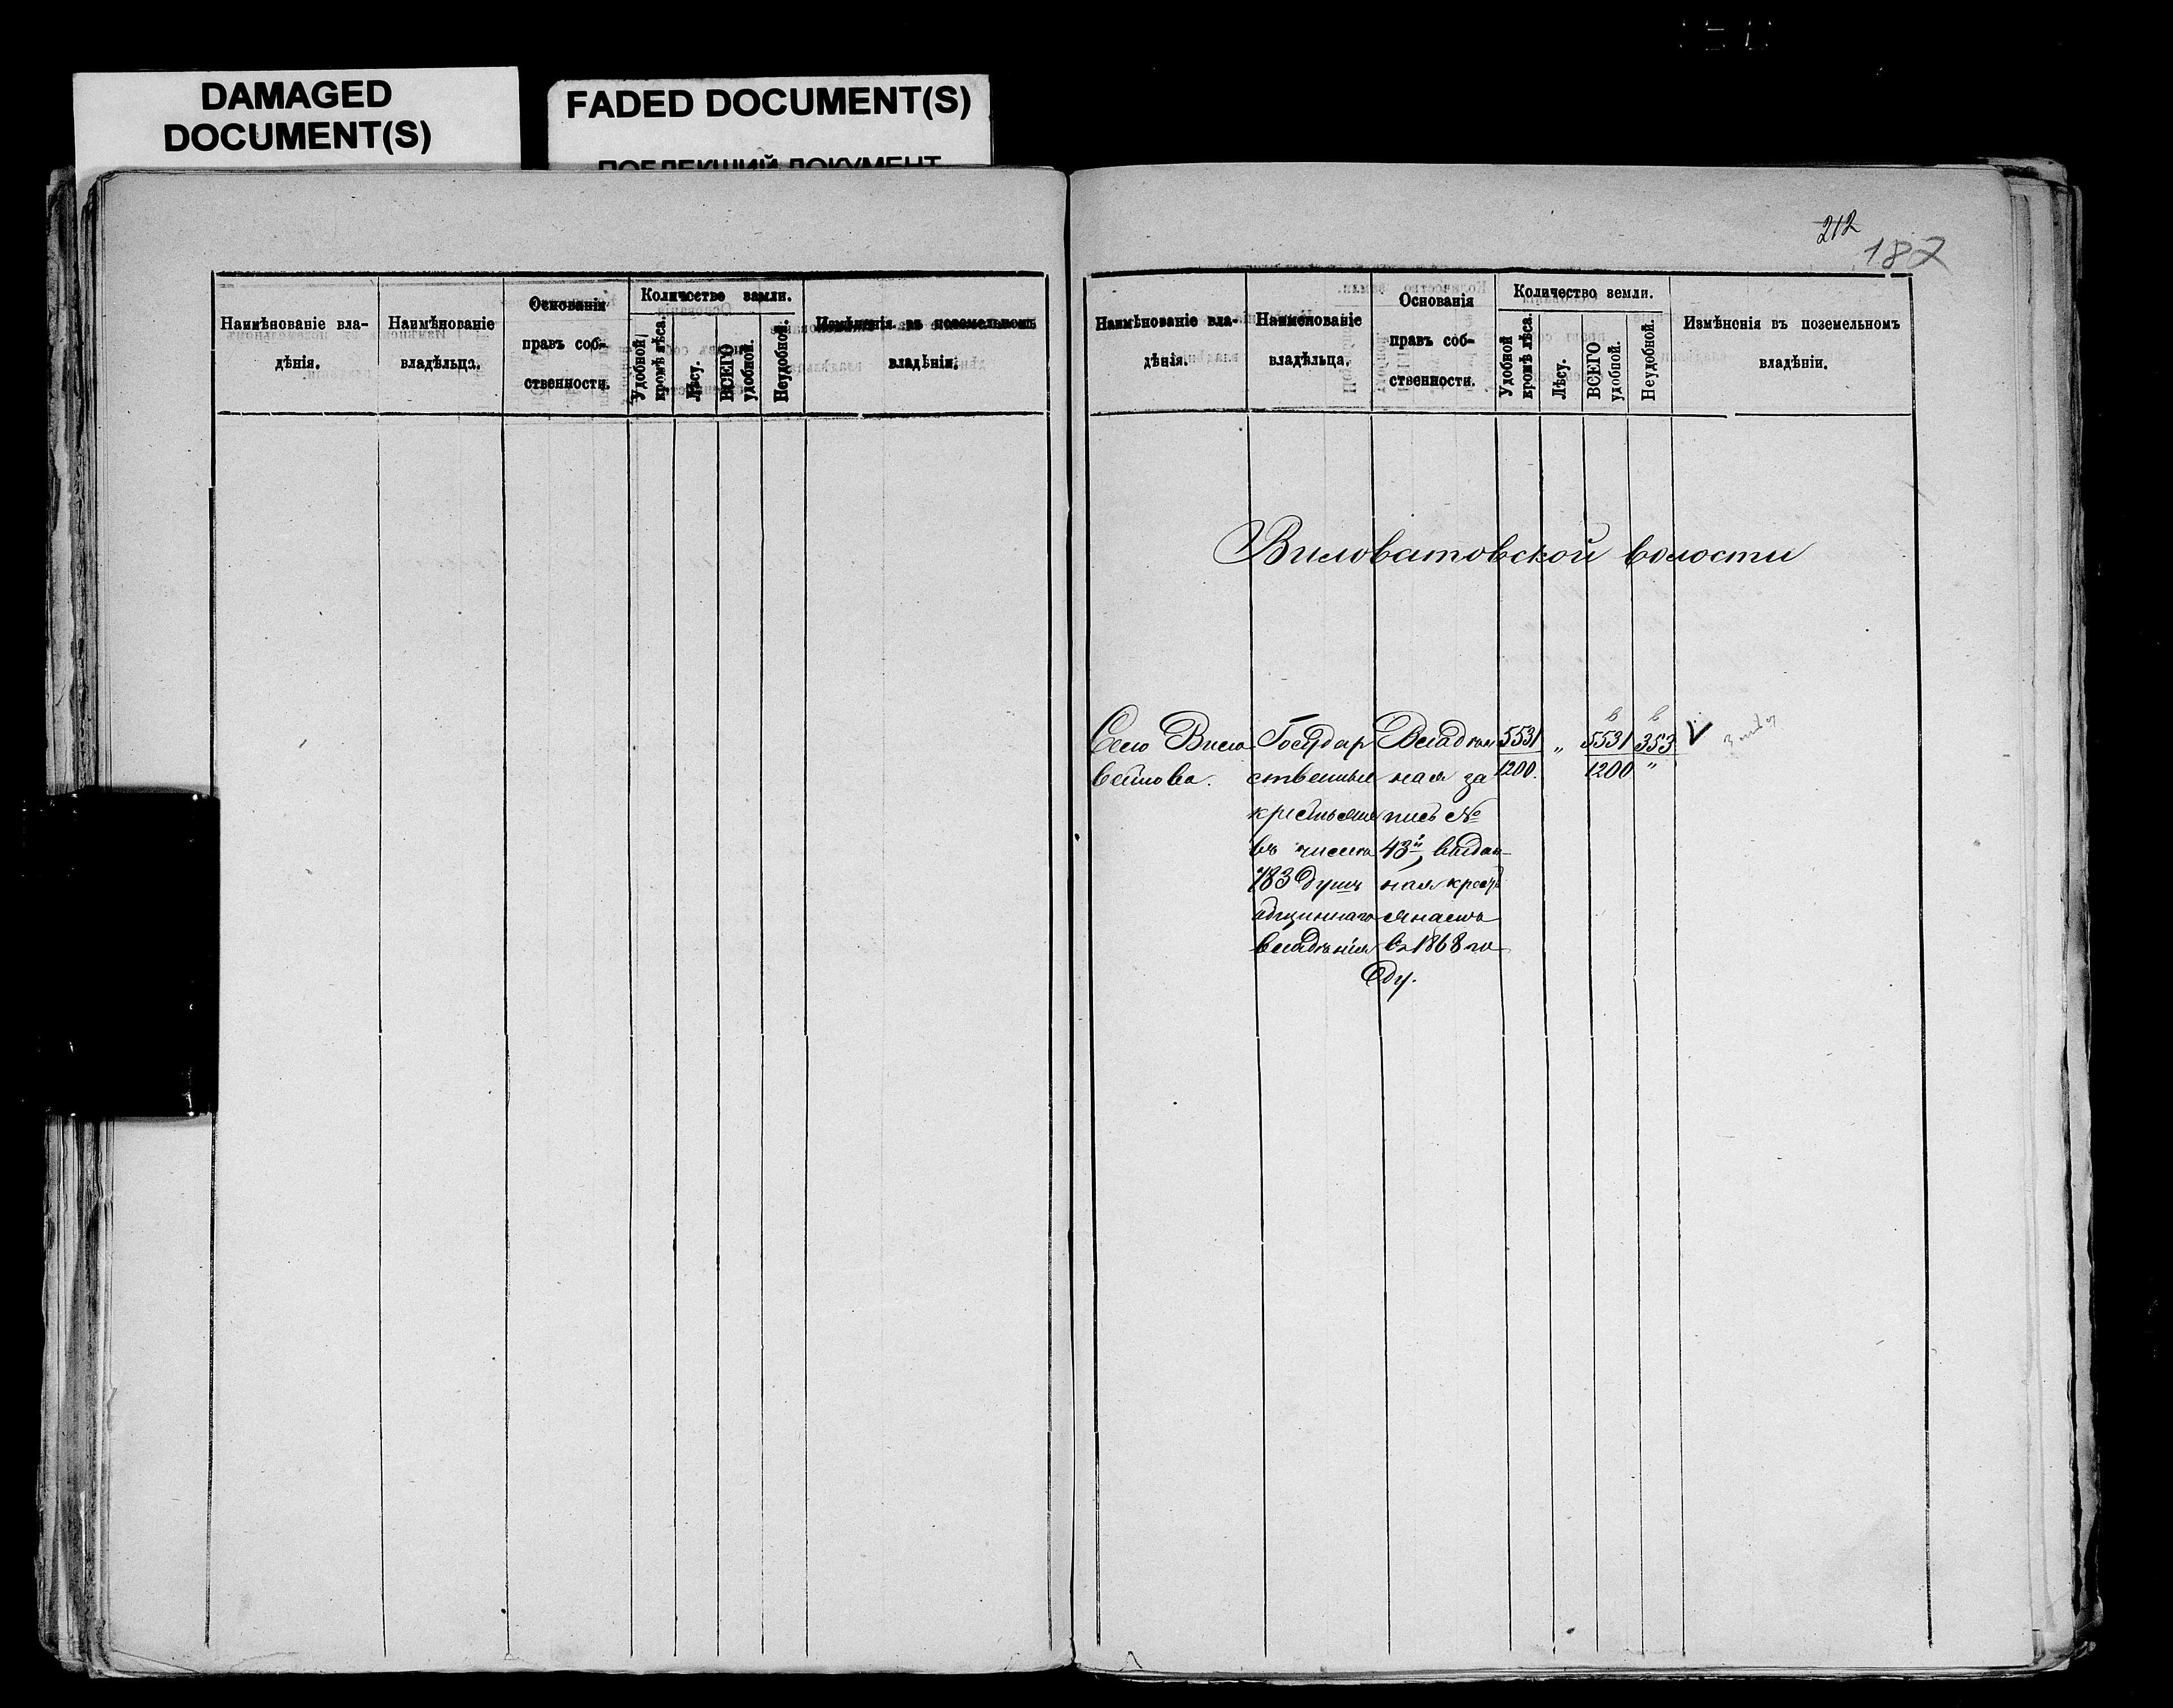 DAMAGED
DOCUMENT(S)
FADED DOCUMENT(S)
ПОБЛЕКШИЙ ДОКУМЕНТ
Наимѣнованіе вла-
дѣнія.
Наимѣнованіе
владѣльца.
Основанія
правъ соб-
ственности.
Количество земли.
Удобной
кромѣ лѣса.
Лѣсу.
ВСЕГО
удобной.
Неудобной.
Измѣненія въ поземельномъ
владѣніи.
212
187
Наимѣнованіе вла-
дѣнія.
Наименованіе
владѣльца.
Основанія
правъ соб-
ственности.
Количество земли.
Удобной
кромѣ лѣса.
Лѣсу.
ВСЕГО
удобной.
Неудобной.
Измѣненія въ поземельномъ
владѣніи.
Виловатовской волости
Село Вило
ватова.
Государ
ственные
крестьяне
въ числѣ
783 душъ
общиннаго
владѣнія
Владѣн
ная за
пись №
43й, выдан
ная кресть
янамъ
въ 1868 го
ду.
5531
1200.
„
5531
1200
353
„